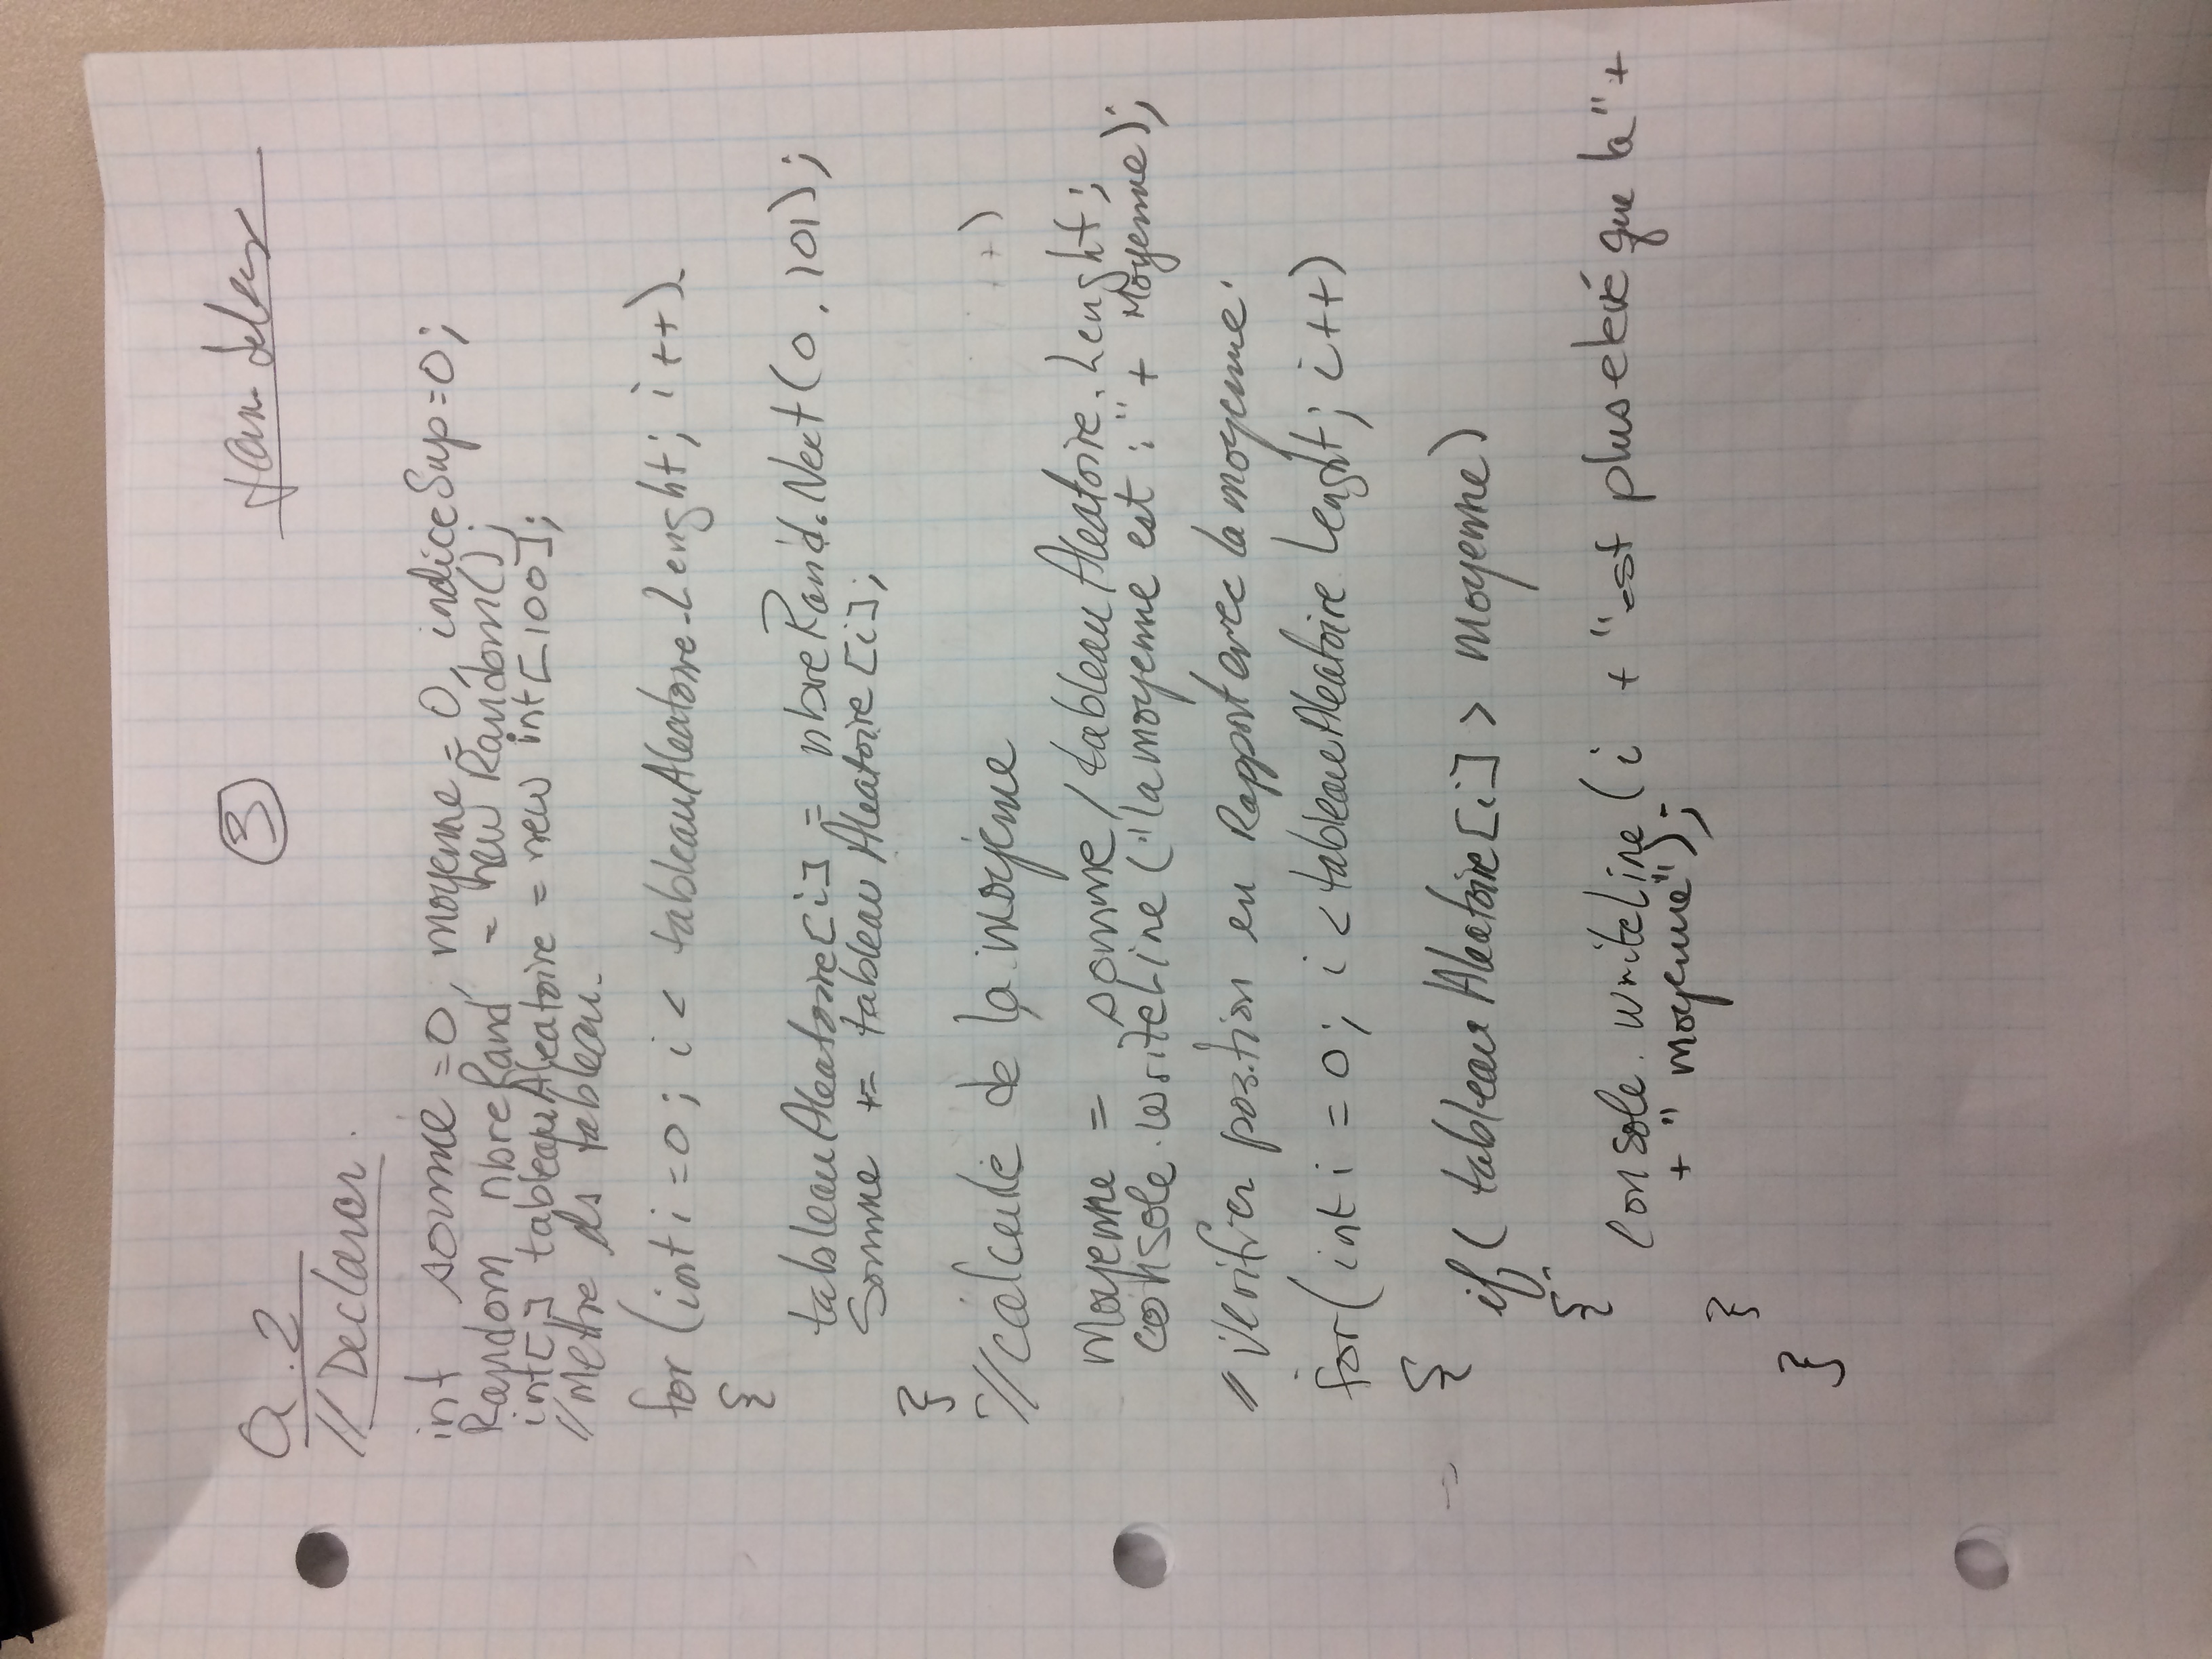 Q.2 3
// Declarer.
int somme = 0, moyenne = 0, indiceSup = 0;
Random nbreRand = new Random();
int[] tableauAleatoire = new int[100];
// mettre ds tableau.
for (int i = 0; i < tableauAleatoire.Lenght; i++)
{
tableauAleatoire[i] = nbreRand.Next(0, 101);
Somme += tableau Aleatoire[i];
}
// calcule de la moyenne
++)
Moyenne = somme / tableau Aleatoire.Lenght;
console.WriteLine ("la moyenne est :" + Moyenne);
// Verifier position en Rapport avec la moyenne.
for (int i = 0; i < tableauAleatoire Lenght; i++)
{
if ( tableau Aleatoire[i] > moyenne)
{
Console. WriteLine (i + "est plus elevé que la" +
+ " moyenne");
}
}